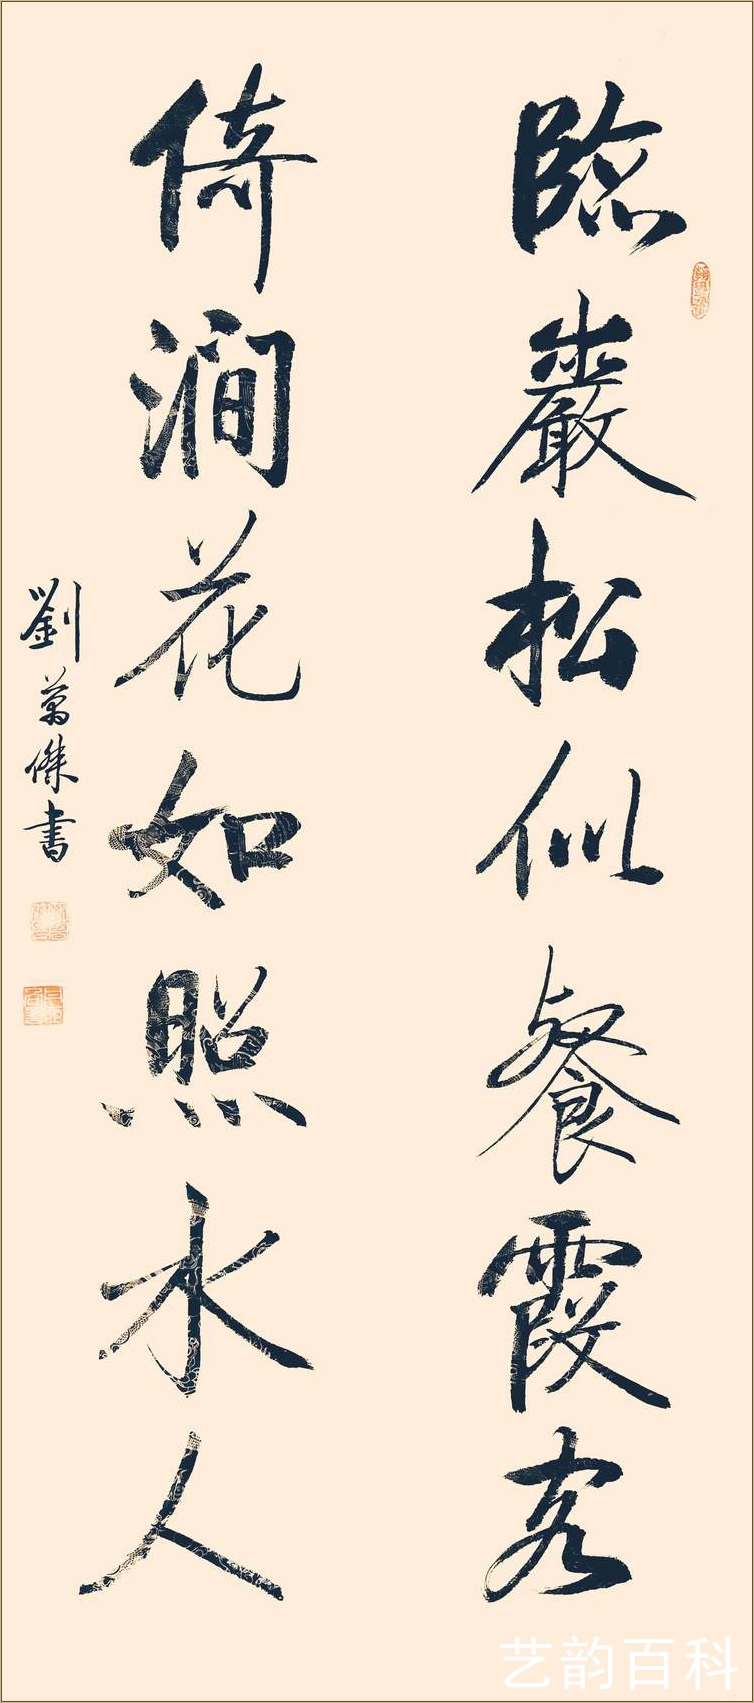 臨巖松似餐霞客
倚澗花如照水人
劉萬傑書
艺韵百科